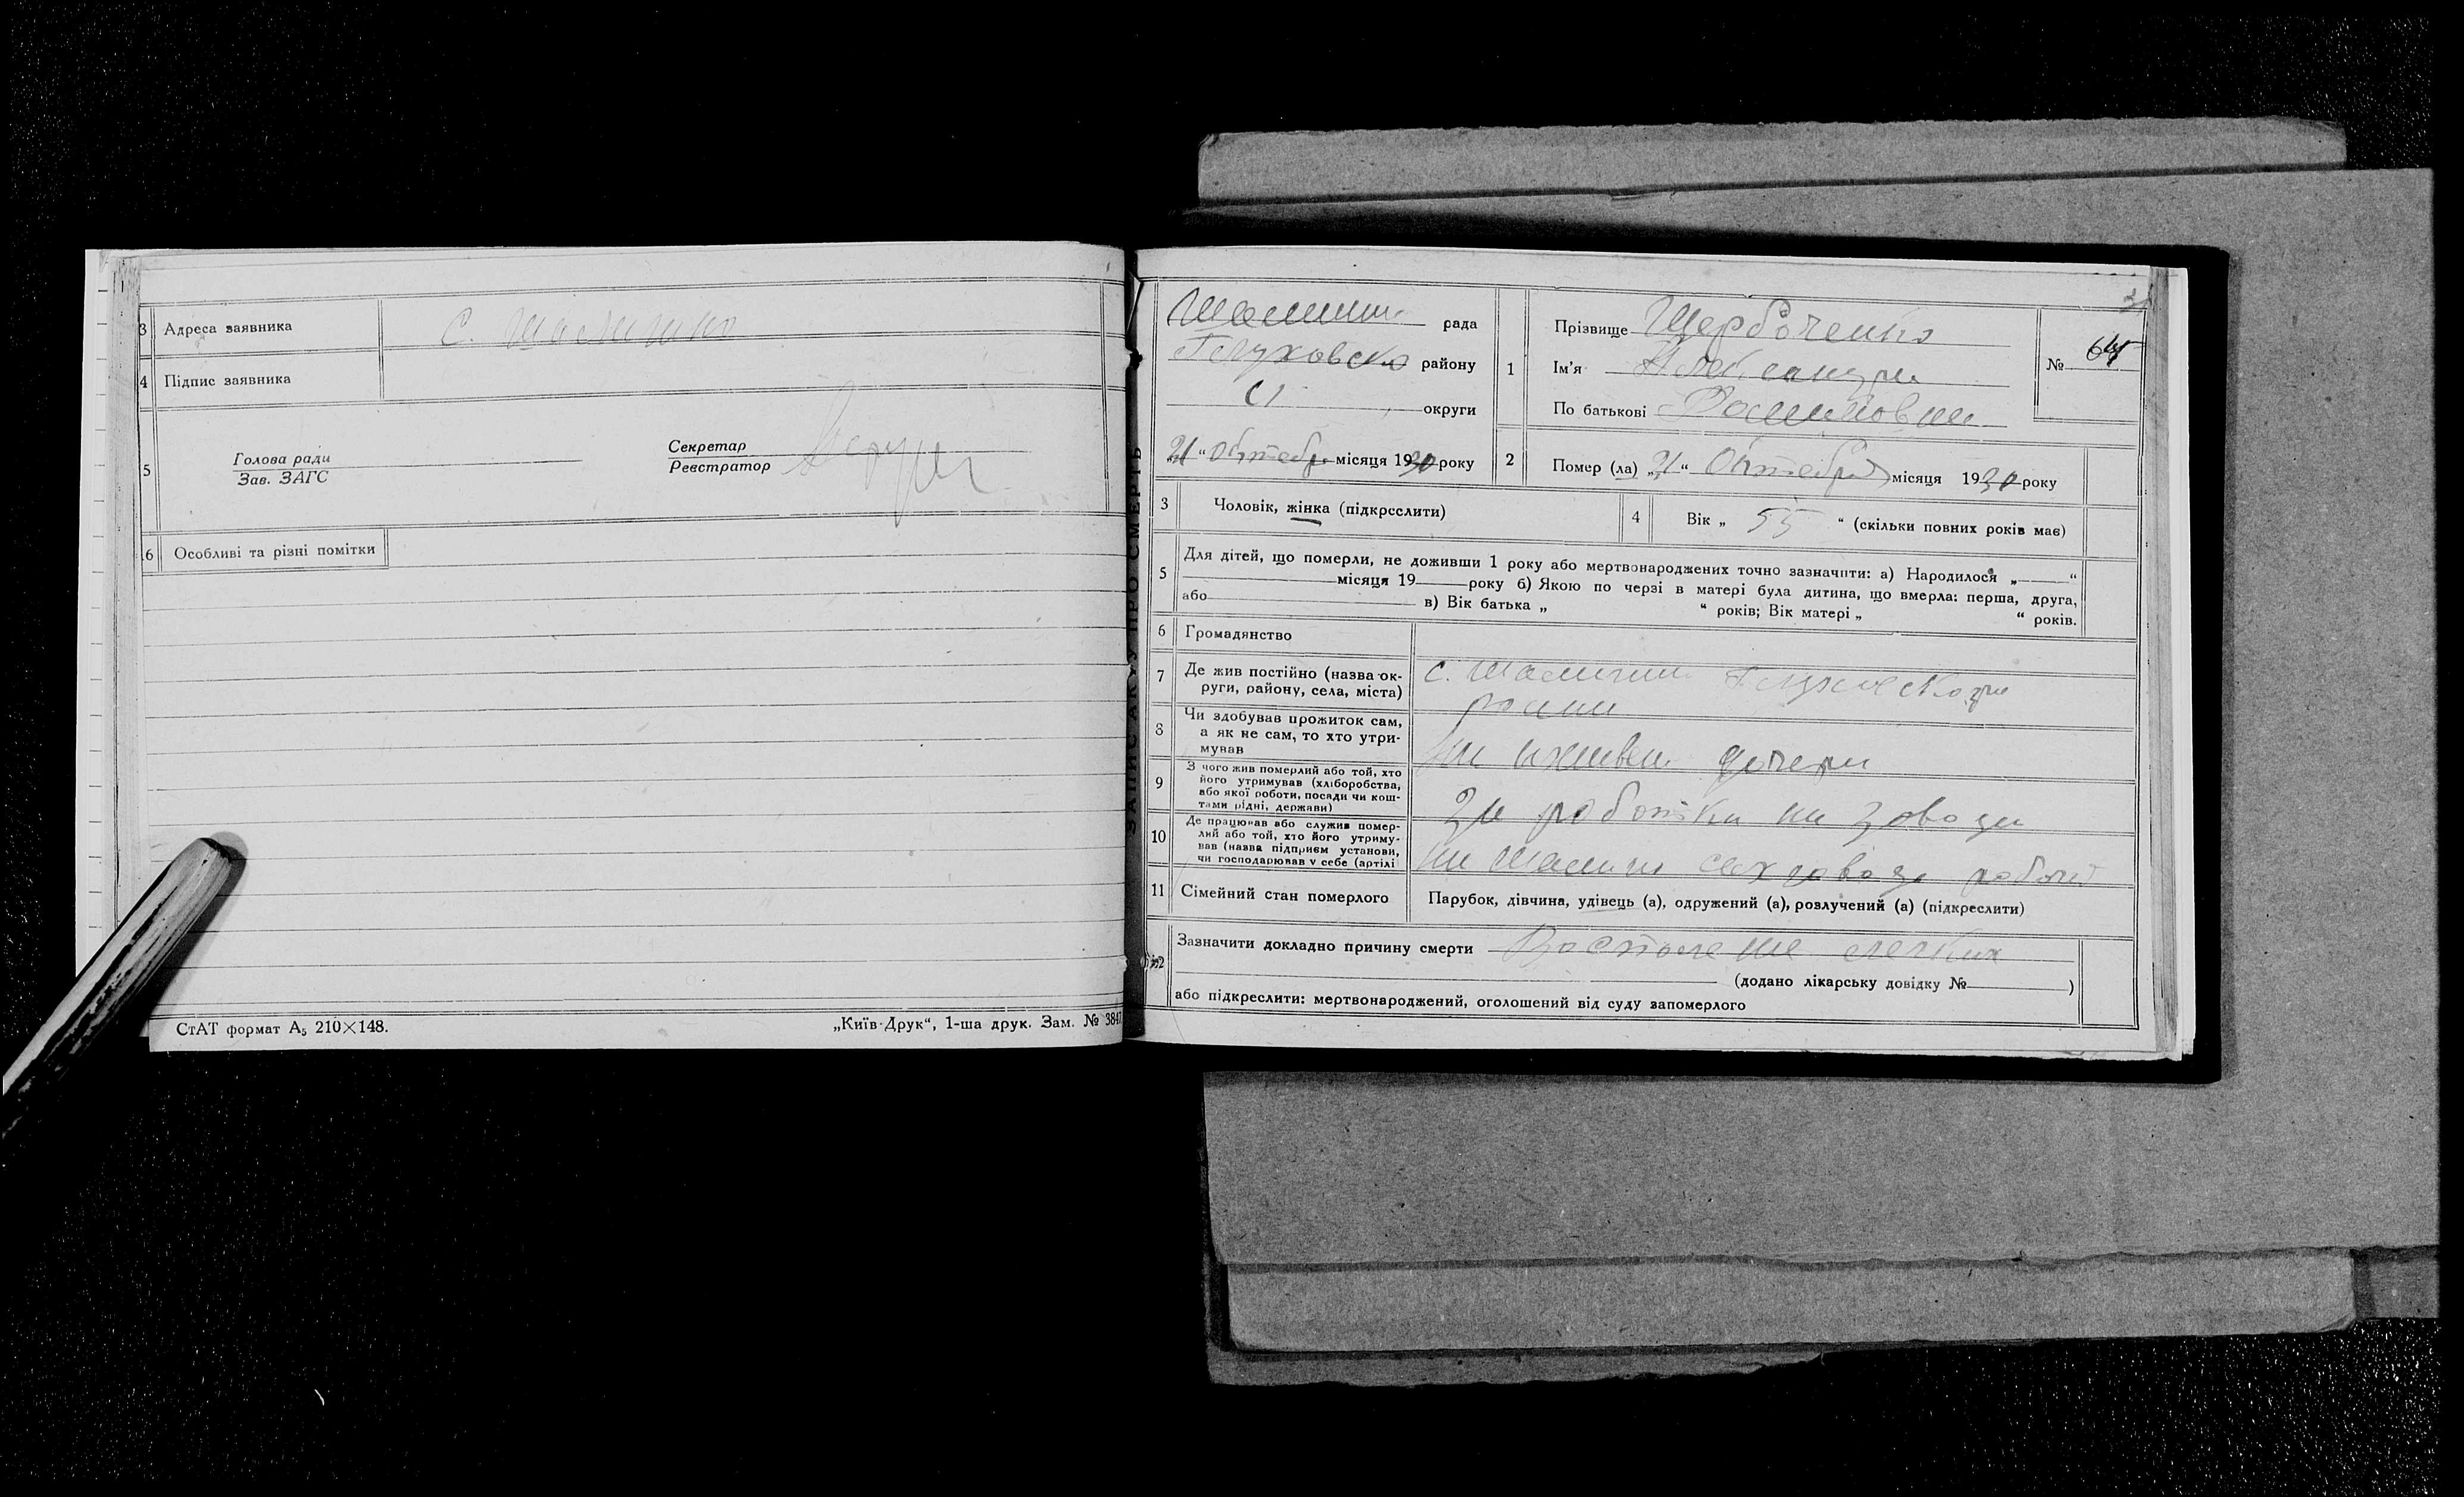 3 Адреса заявника с. Шалигино
4 Підпис заявника
5 Голова ради
Зав. ЗАГС
Секретар
Реєстратор
6 Особливі та різні помітки
СтАТ формат А₅ 210×148.
„Київ-Друк“, 1-ша друк. Зам. № 3841
ЗАПИС АКТУ ПРО СМЕРТЬ
рада
Глуховско району
округи
„21“ Октебр місяця 1930 року
1 Прізвище Щербоченко
Ім'я Александра
По батькові
№ 64
2 Помер (ла) „21“ Октебря місяця 1930 року
3 Чоловік, жінка (підкреслити)
4 Вік „ 55 “ (скільки повних років має)
5 Для дітей, що померли, не доживши 1 року або мертвонароджених точно зазначити: а) Народилося „ “
місяця 19 року б) Якою по черзі в матері була дитина, що вмерла: перша, друга,
або в) Вік батька „ “ років; Вік матері „ “ років.
6 Громадянство
7 Де жив постійно (назва ок-
руги, району, села, міста)
с. Шалигин Глуховского
8 Чи здобував прожиток сам,
а як не сам, то хто утри-
мував
на иживен дочери
9 З чого жив померлий або той, хто
його утримував (хліборобства,
або якої роботи, посади чи кош-
тами рідні, держави)
за роботки на завода
10 Де працював або служив помер-
лий або той, хто його утриму-
вав (назва підприєм установи,
чи господарював у себе (артілі
на Шалиги сахзавода
11 Сімейний стан померлого
Парубок, дівчина, удівець (а), одружений (а), розлучений (а) (підкреслити)
12 Зазначити докладно причину смерти Восполение легких
(додано лікарську довідку № )
або підкреслити: мертвонароджений, оголошений від суду запомерлого